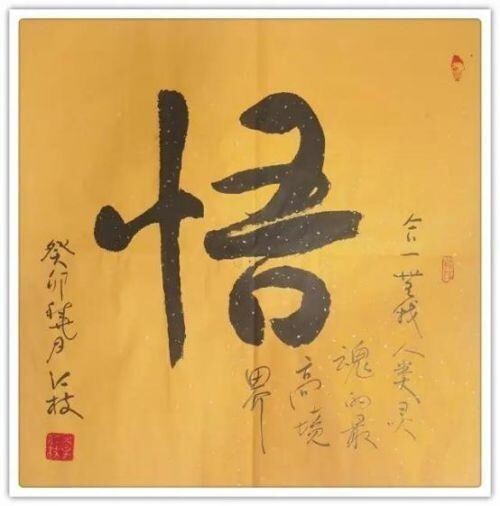 悟
合一無我人类灵
魂的最
高境
界
癸卯月枝